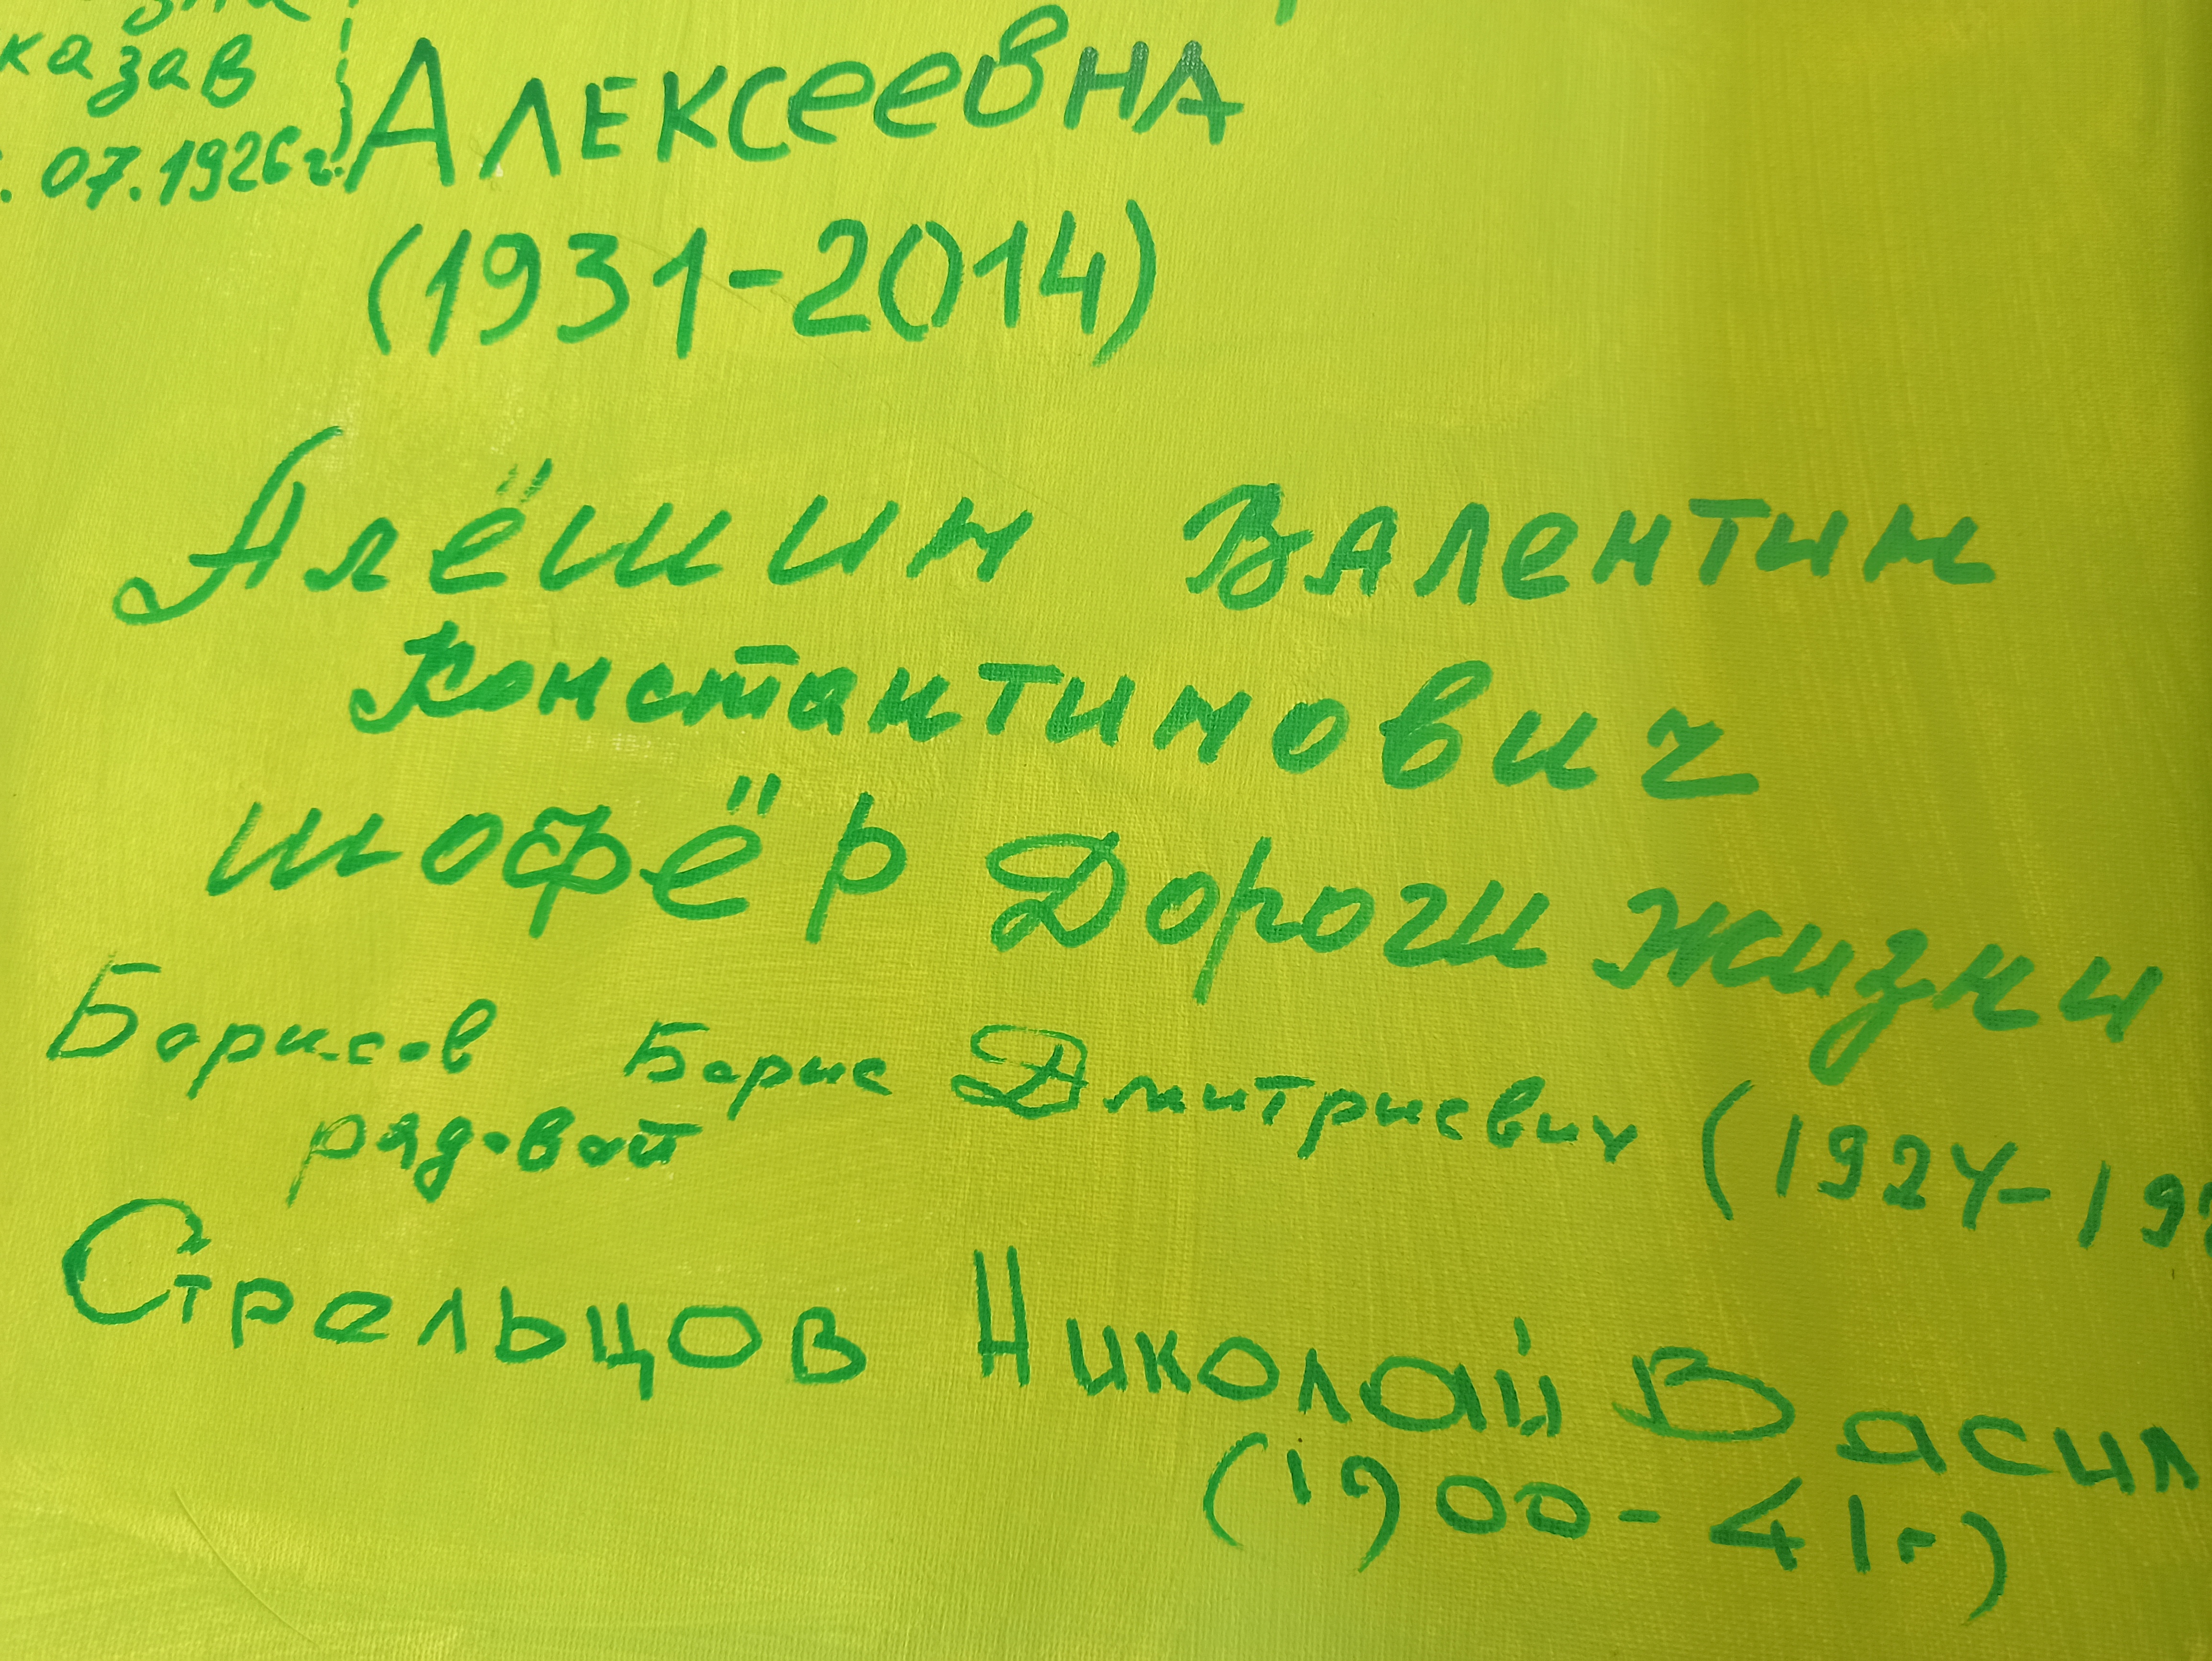 казав
07.1926г.
Алексеевна
(1931-2014)
Алёшин Валентин
Константинович
шофёр Дороги жизни
Борисов Борис Дмитриевич (1924-19
рядовой
Стрельцов Николай Васил
(1900-41г)